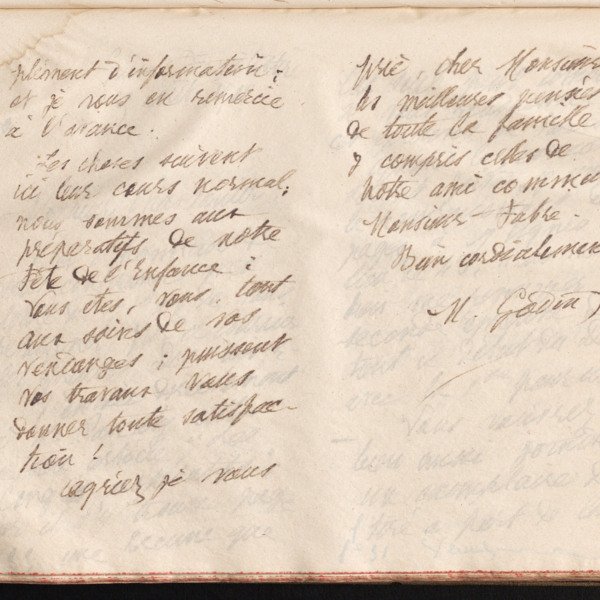 plément d'information ;
et je vous en remercie
à l'avance.
Les choses suivent
ici leur cours normal ;
nous sommes aux
préparatifs de notre
Fête de l'Enfance ;
Vous êtes, vous, tout
aux soins de vos
vendanges ; puissent
vos travaux vous
donner toute satisfac-
tion !
Agréez je vous
prie, cher Monsieur
les meilleures pensées
de toute la famille
y compris celles de
notre ami commun
Monsieur Fabre.
Bien cordialement
M. Godin